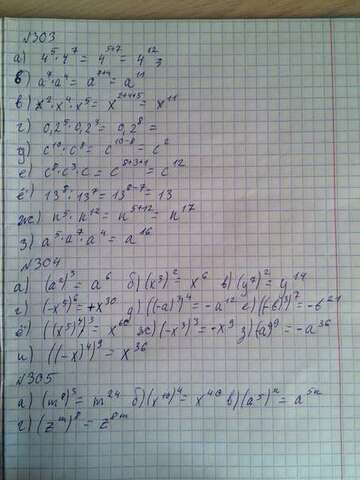 №303
а) 4⁵·4⁷ = 4⁵⁺⁷ = 4¹² 3
в) a⁷·a⁴ = a⁷⁺⁴ = a¹¹
в) x²·x⁴·x⁵ = x²⁺⁴⁺⁵ = x¹¹
г) 0,2⁵·0,2³ = 0,2⁸ =
д) c¹⁰:c⁸ = c¹⁰⁻⁸ = c²
е) c⁸·c³·c = c⁸⁺³⁺¹ = c¹²
ё) 13⁸:13⁷ = 13⁸⁻⁷ = 13
ж) n⁵·n¹² = n⁵⁺¹² = n¹⁷
з) a⁵·a⁷·a⁴ = a¹⁶
№304
а) (a²)³ = a⁶ б) (x³)² = x⁶ в) (y⁷)² = y¹⁴
г) (-x⁵)⁶ = +x³⁰ д) ((-a)³)⁴ = -a¹² е) ((-b)³)⁷ = -b²¹
ё) ((x⁵)⁴)³ = x⁶⁰ ж) (-x³)³ = -x⁹ з) (a⁴)⁹ = -a³⁶
и) ((-x)⁴)⁹ = x³⁶
№305
а) (m⁸)³ = m²⁴ б) (x¹⁰)⁴ = x⁴⁰ в) (a⁵)ⁿ = a⁵ⁿ
г) (zᵐ)⁸ = z⁸ᵐ